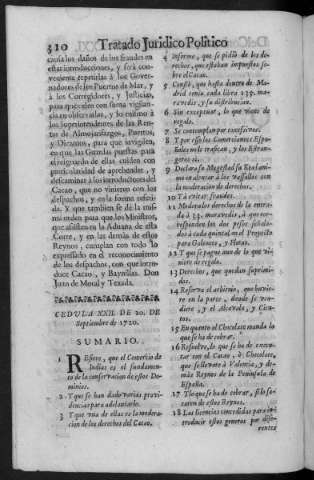 310 Tratado Juridico Politico
causa los daños de los fraudes en
estas introducciones, y será con-
veniente repetirlas à los Gover-
nadores de los Puertos de Mar, y
à los Corregidores, y Justicias,
para que zelen con suma vigilan-
cia en observarlas, y lo mismo à
los Superintendentes de las Ren-
tas de Almojarifazgos, Puertos,
y Diezmos, para que invigilen,
en que las Guardas puestas para
el resguardo de ellas cuiden con
puntualidad de aprehender, y
descaminar à los introductores del
Cacao, que no vinieren con los
despachos, y en la forma referi-
da. Y que tambien se dè la mis-
ma orden para que los Ministros,
que assisten en la Aduana de esta
Corte, y en las demàs de estos
Reynos, cumplan con todo lo
expressado en el reconocimiento
de los despachos, con que intro-
duce Cacao, y Baynillas. Don
Juan de Moral y Texada.
CEDULA XXII. DE 20. DE
Septiembre de 1720.
SUMARIO.
1 Refiere, que el Comercio de
Indias es el fundamen-
to de la conservacion de estos Do-
minios.
2 Y que se han dado varias provi-
dencias para adelantarle.
3 Y que una de ellas es la modera-
cion de los derechos del Cacao.
4 Informe, que se pidiò de los de-
rechos, que estaban impuestos so-
bre el Cacao.
5 Consta, que hasta dentro de Ma-
drid tenia cada libra 239. ma-
ravedis, y su distribucion.
6 Sin exceptuar, lo que viene de
regalo.
7 Se contemplan por excessivos.
8 Y por esso los Comerciantes Espa-
ñoles no le trafican, y los Estran-
geros si.
9 Declara su Magestad su Real ani-
mo en aliviar à sus vassallos con
la moderacion de derechos.
10 Y à evitar fraudes.
11 Moderalos derechos de la entra-
da à 33. maravedis, à que cor-
responden los dos pesos señala-
dos à cada quintal en el Proyecto
para Galeones, y Flotas.
12 Y que se pague aun de lo que vi-
niere de regalo.
13 Derechos, que quedan suprimi-
dos.
14 Reserva el arbitrio, que huvie-
re en la parte, donde se ven-
diere, y el Alcavala, y Cien-
tos.
15 En quanto al Chocolate manda lo
que se ha de cobrar.
16 Resuelve, lo que se ha de execu-
tar con el Cacao, ò Chocolate,
que se llevare à Valencia, y de-
màs Reynos de la Peninsula de
España.
17 Y lo que se ha de cobrar, si lo sa-
caren de estos Reynos.
18 Las licencias concedidas para in-
troducir estos generos por dife-
rentes